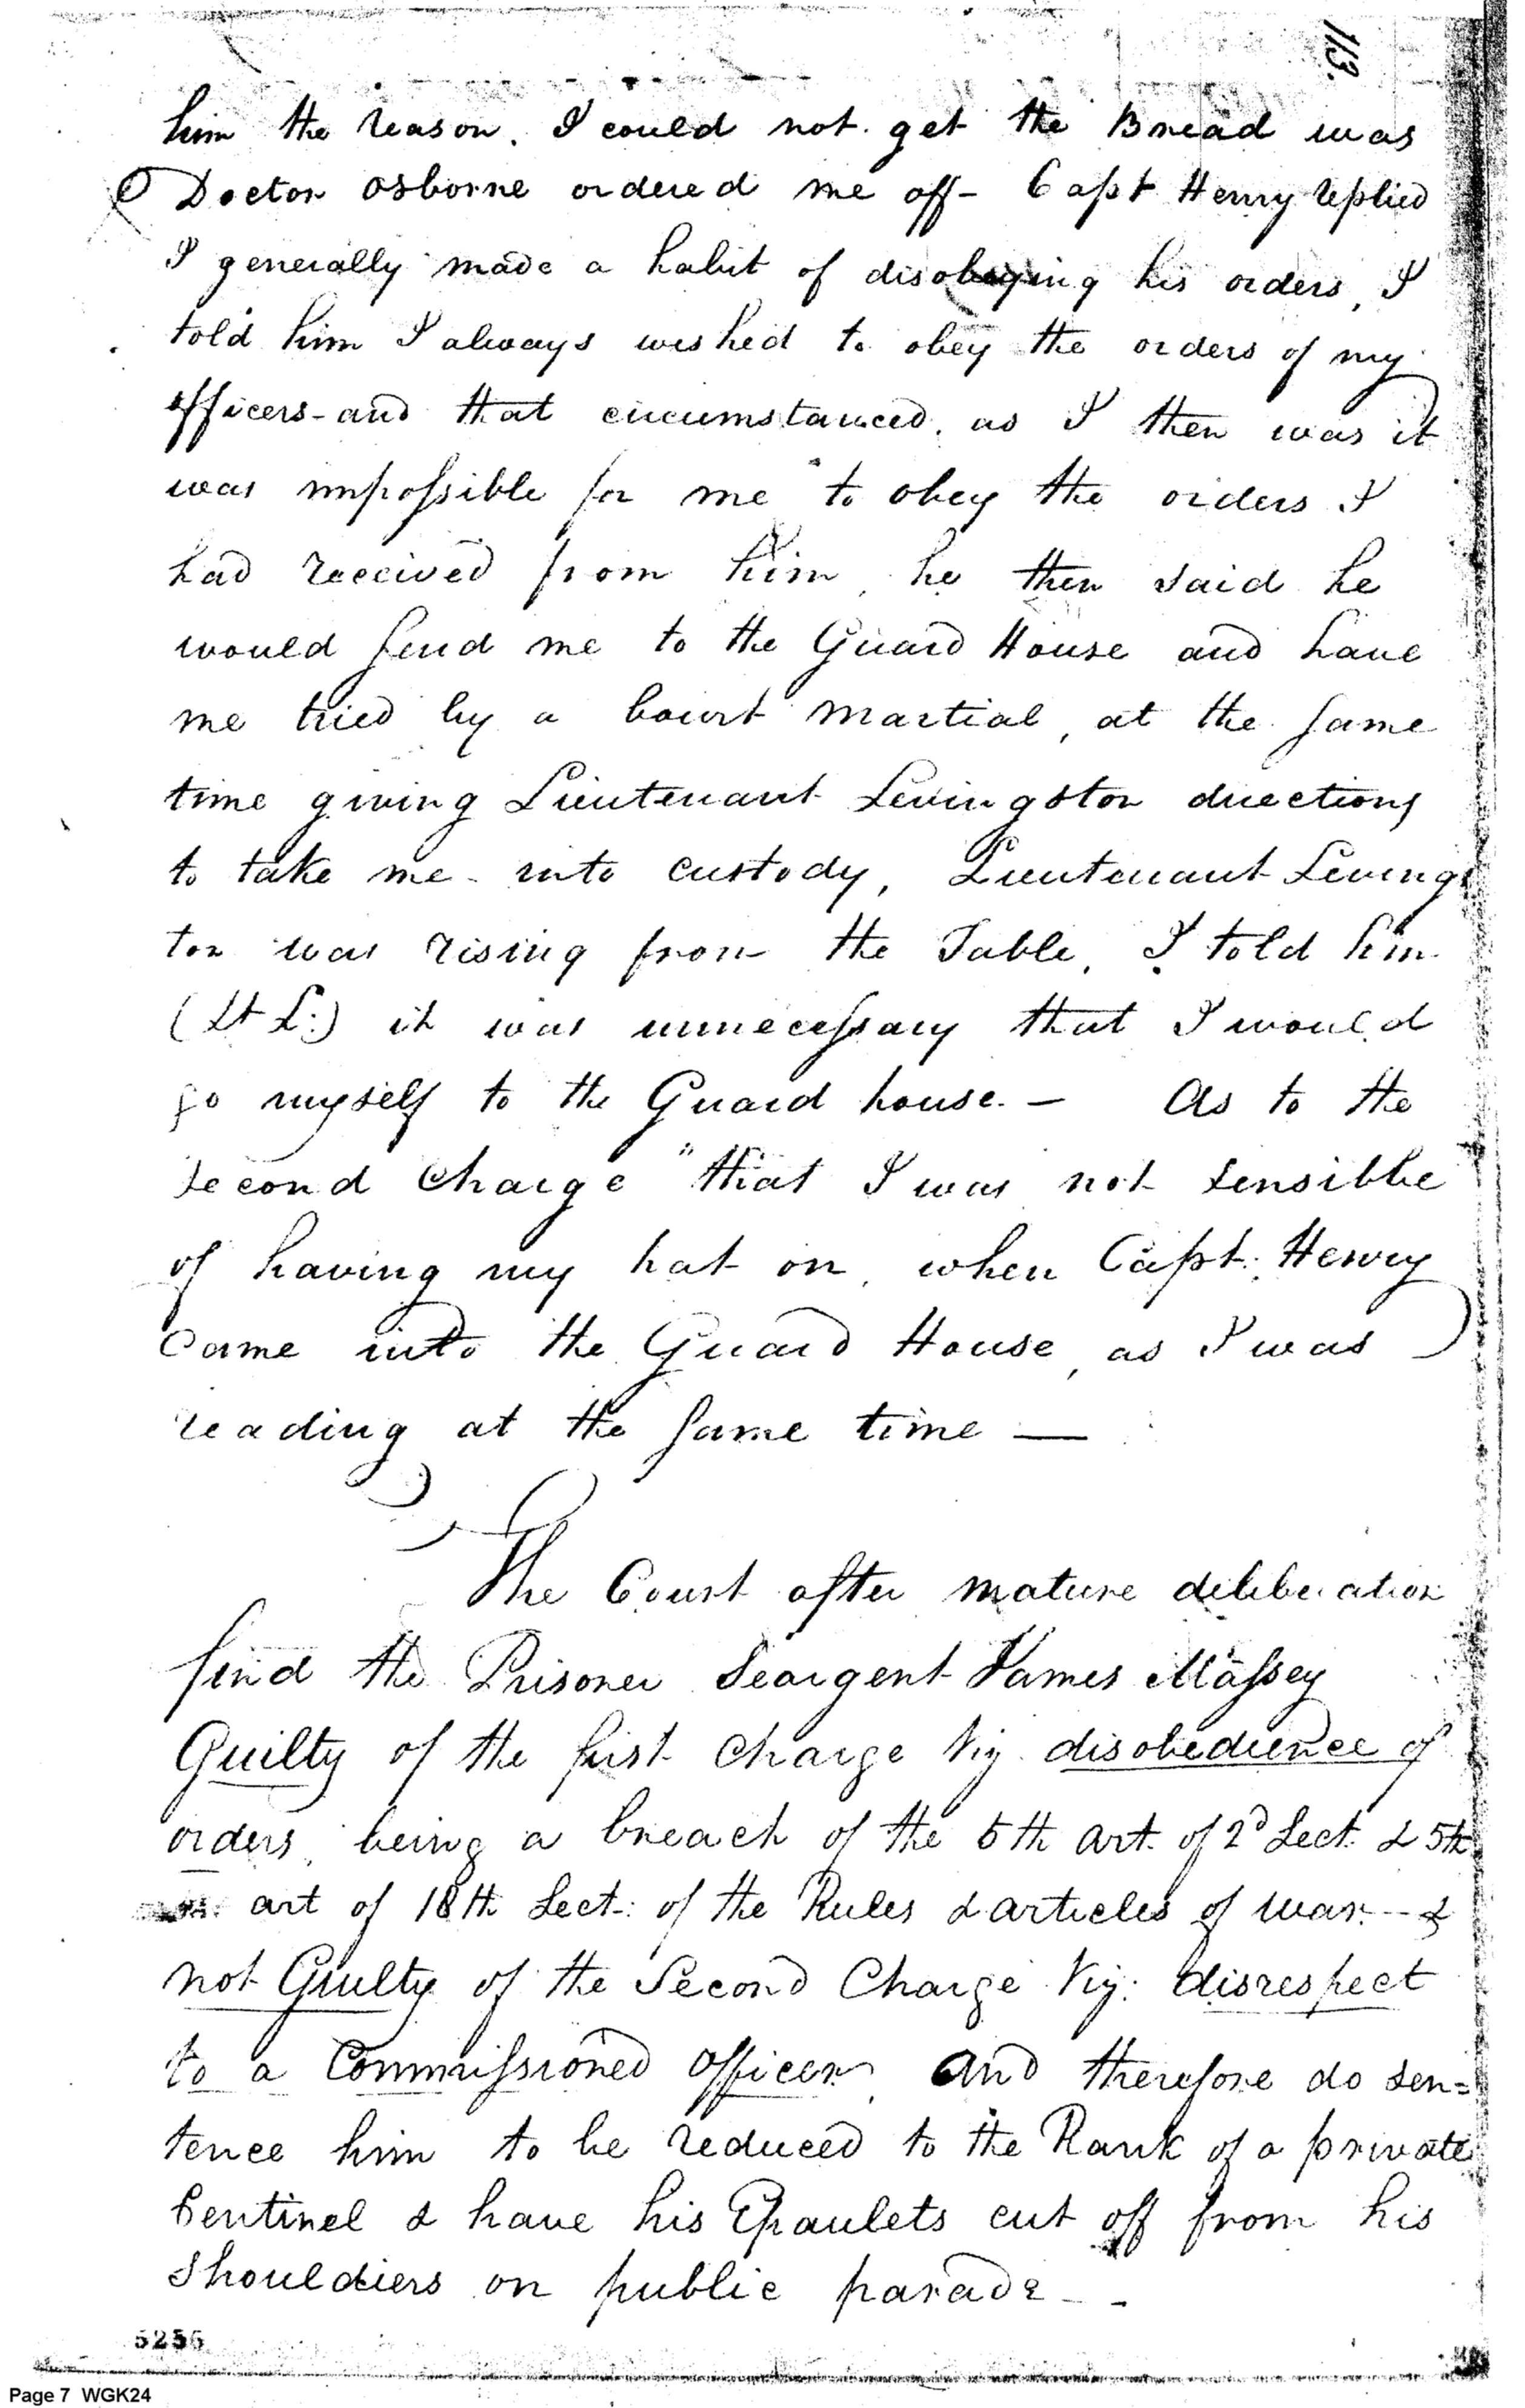 113.
him the reason. I could not get the Bread was
Doctor Osborne ordered me off - Capt Henry replied
I generally made a habit of disobeying his orders, I
told him I always wished to obey the orders of my
officers - and that circumstanced, as I then was it
was impossible for me to obey the orders I
had received from him, he then said he
would send me to the Guard House and have
me tried by a Court Martial, at the same
time giving Lieutenant Levingston directions
to take me into custody, Lieutenant Levings
ton was rising from the Table, I told him
(Lt L:) it was unnecessary that I would
go myself to the Guard house. — As to the
second Charge "that I was not sensible
of having my hat on, when Capt. Henry
Came into the Guard House, as I was
reading at the same time —
The Court after mature deliberation
find the Prisoner Seargent James Massey
Guilty of the first Charge Viz. disobedience of
orders, being a breach of the 5th art. of 2d Sect. & 5th
art of 18th Sect: of the Rules & articles of war. - - &
not Guilty of the Second Charge Viz: disrespect
to a Commissioned officer, and therefore do sen=
tence him to be reduced to the Rank of a private
Sentinel & have his Epaulets cut off from his
Shouldiers on public parade - -
5256
Page 7 WGK24